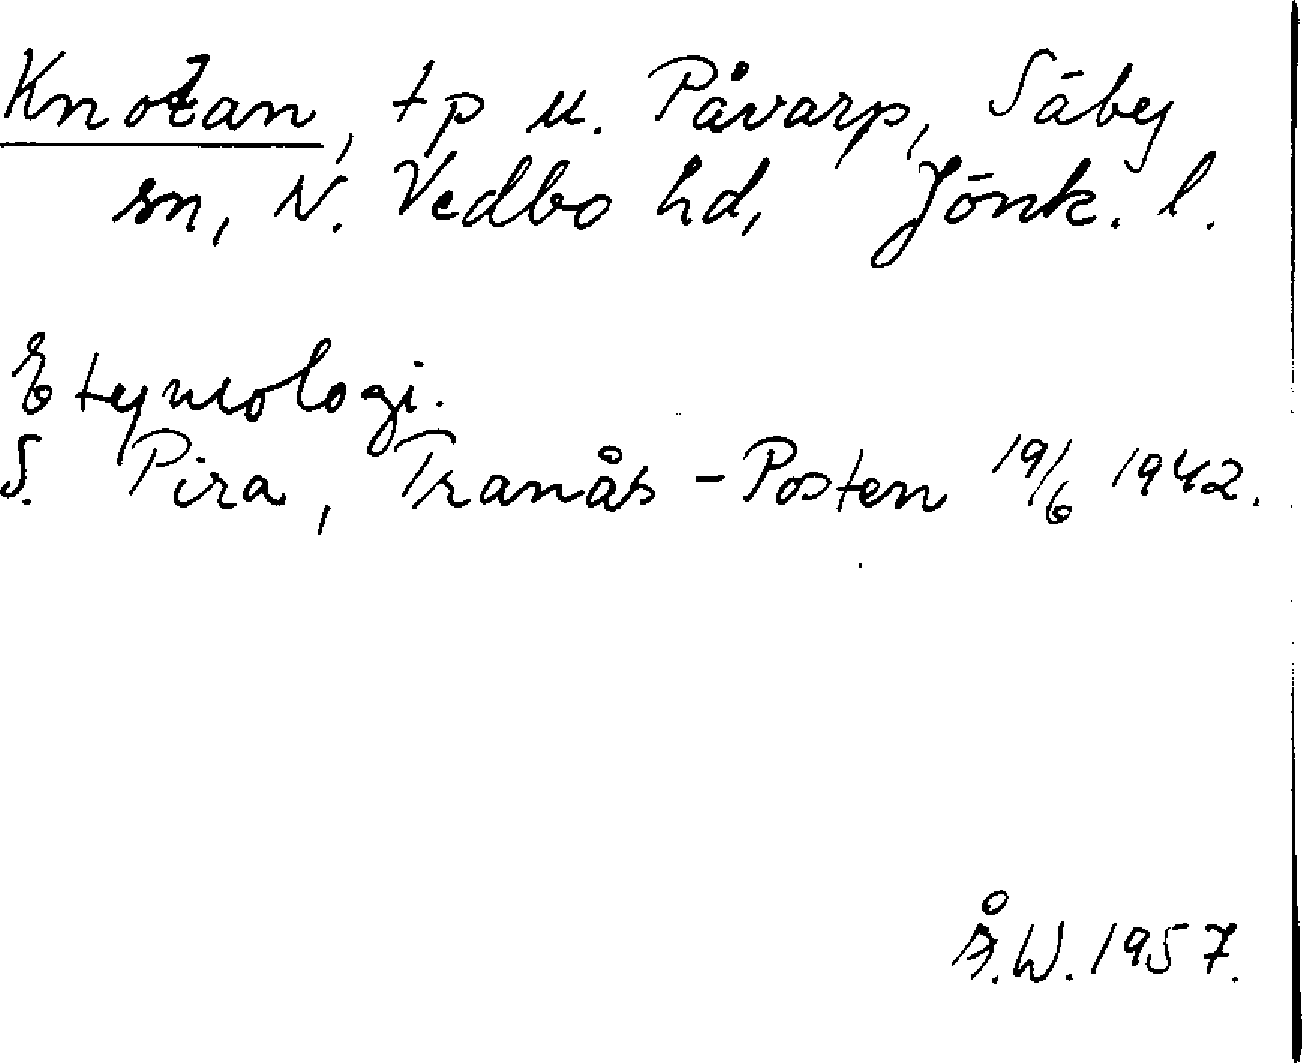 Knotan, tp u. Påvarp, Säby
sn, N. Vedbo hd, Jönk. l.
Etymologi.
S. Pira, Tranås-Posten 19/6 1942.
Å.W. 1957.